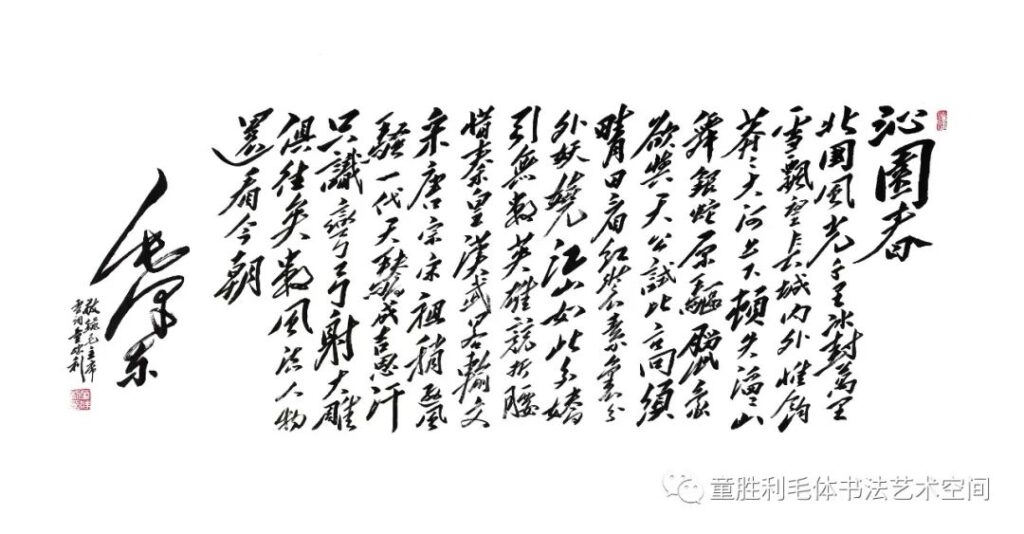 沁園春
北国風光千里冰封萬里
雪飄望長城内外惟餘
莽〻大河上下頓失滔〻山
舞銀蛇原驅臘象
欲與天公試比高須
晴日看紅裝素裹分
外妖嬈江山如此多嬌
引無數英雄競折腰
惜秦皇漢武略輸文
采唐宗宋祖稍遜風
騷一代天驕成吉思汗
只識彎弓射大雕
俱往矣數風流人物
還看今朝
毛澤东
敬録毛主席
雪词童胜利
童胜利毛体书法艺术空间